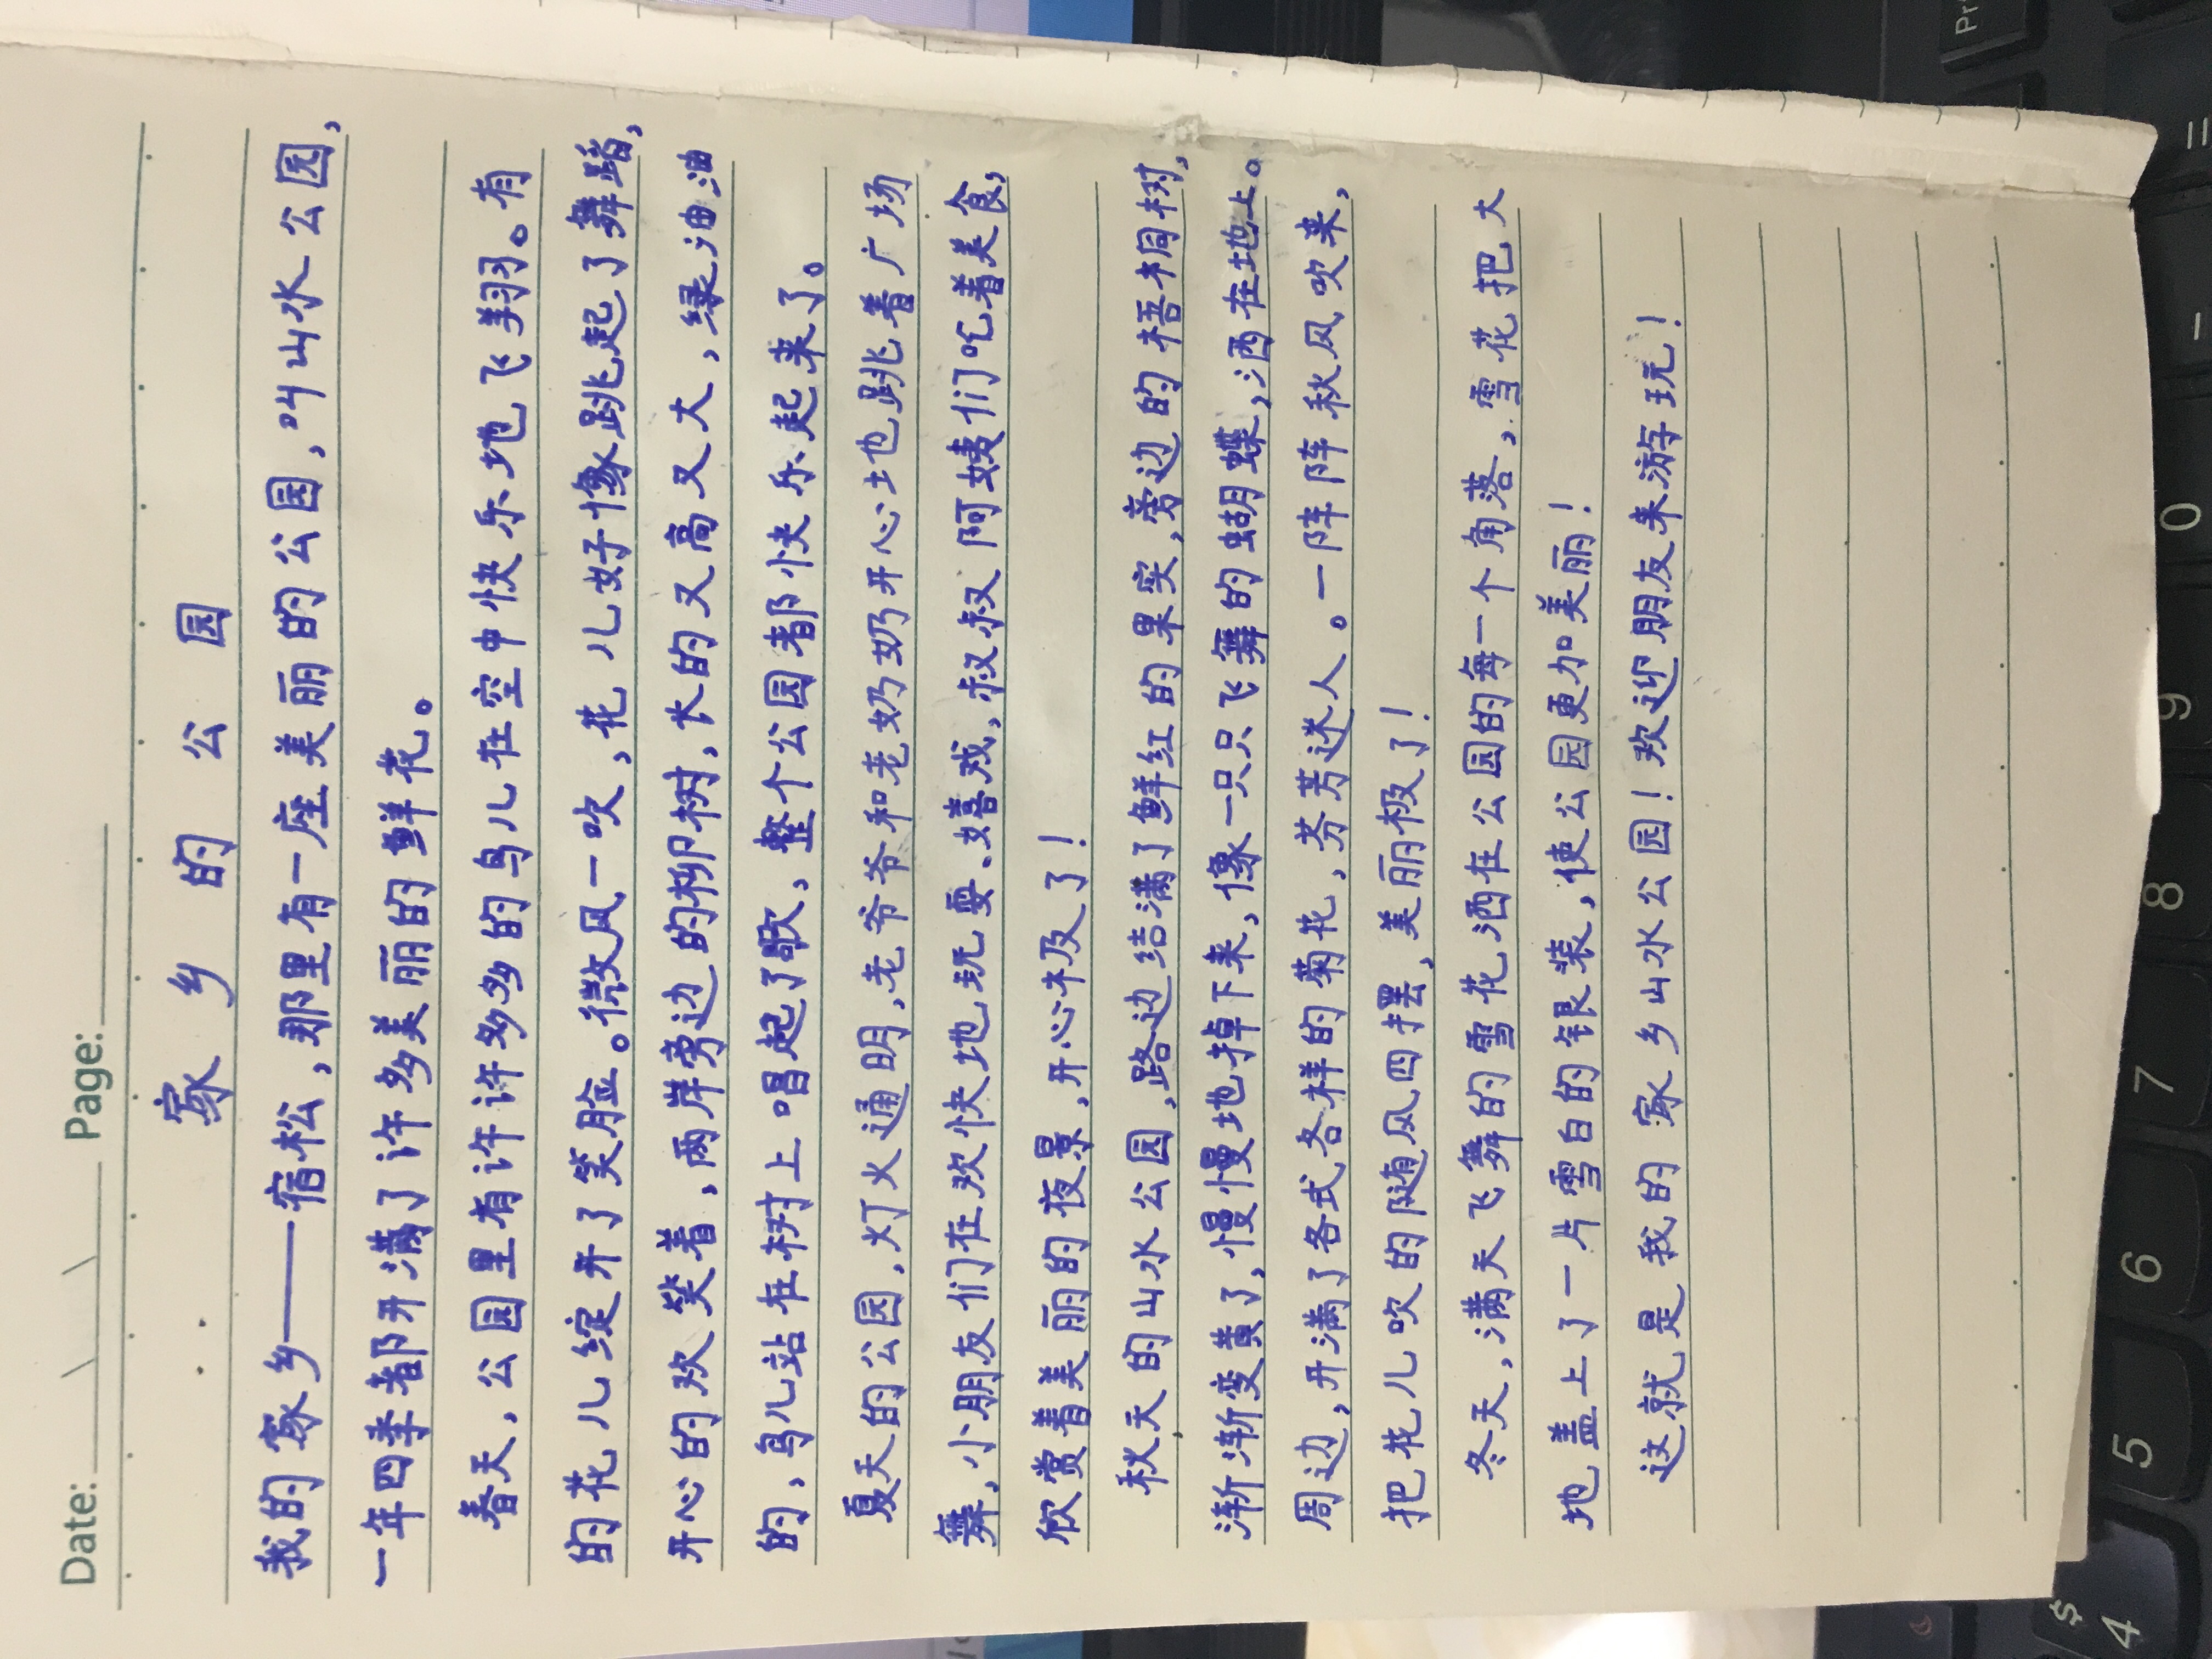 Date: Page:
家乡的公园
我的家乡——宿松，那里有一座美丽的公园，叫山水公园，
一年四季都开满了许多美丽的鲜花。
春天，公园里有许许多多的鸟儿在空中快乐地飞翔。有
的花儿绽开了笑脸。微风一吹，花儿好像跳起了舞蹈，
开心的欢笑着，两岸旁边的柳树，长的又高又大，绿油油
的，鸟儿站在树上唱起了歌，整个公园都快乐起来了。
夏天的公园，灯火通明，老爷爷和老奶奶开心地跳着广场
舞，小朋友们在欢快地玩耍、嬉戏，叔叔阿姨们吃着美食，
欣赏着美丽的夜景，开心极了！
秋天的山水公园，路边结满了鲜红的果实，旁边的梧桐树，
渐渐变黄了，慢慢地掉下来，像一只只飞舞的蝴蝶，洒在地上。
周边，开满了各式各样的菊花，芬芳迷人。一阵阵秋风吹来，
把花儿吹的随风四摆，美丽极了！
冬天，满天飞舞的雪花洒在公园的每一个角落，雪花把大
地盖上了一片雪白的银装，使公园更加美丽！
这就是我的家乡山水公园！欢迎朋友来游玩！
Pr
$
4
5
6
7
8
9
0
-
=